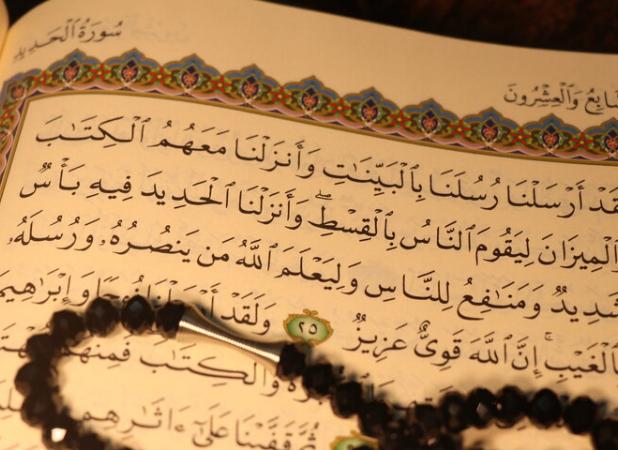 سُورَةُ ٱلْحَدِيدِ
ـابِعُ وَٱلْعِشْرُونَ
ـقَدْ أَرْسَلْنَا رُسُلَنَا بِٱلْبَيِّنَٰتِ وَأَنزَلْنَا مَعَهُمُ ٱلْكِتَٰبَ
ٱلْمِيزَانَ لِيَقُومَ ٱلنَّاسُ بِٱلْقِسْطِۖ وَأَنزَلْنَا ٱلْحَدِيدَ فِيهِ بَأْسٌ
شَدِيدٌ وَمَنَٰفِعُ لِلنَّاسِ وَلِيَعْلَمَ ٱللَّهُ مَن يَنصُرُهُۥ وَرُسُلَهُۥ
ـٱلْغَيْبِۚ إِنَّ ٱللَّهَ قَوِىٌّ عَزِيزٌ ٢٥ وَلَقَدْ أَرْسَلْنَا نُوحًا وَإِبْرَٰهِيمَ
وَٱلْكِتَٰبَ فَمِنْهُم
ثُمَّ قَفَّيْنَا عَلَىٰٓ ءَاثَٰرِهِم